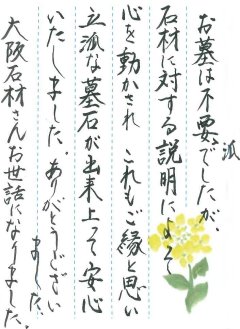 お墓は不要でしたが、
石材に対する説明によって
心を動かされ これもご縁と思い
立派な墓石が出来上って安心
いたしました。ありがとうござい
ました。
大阪石材さんお世話になりました。
派